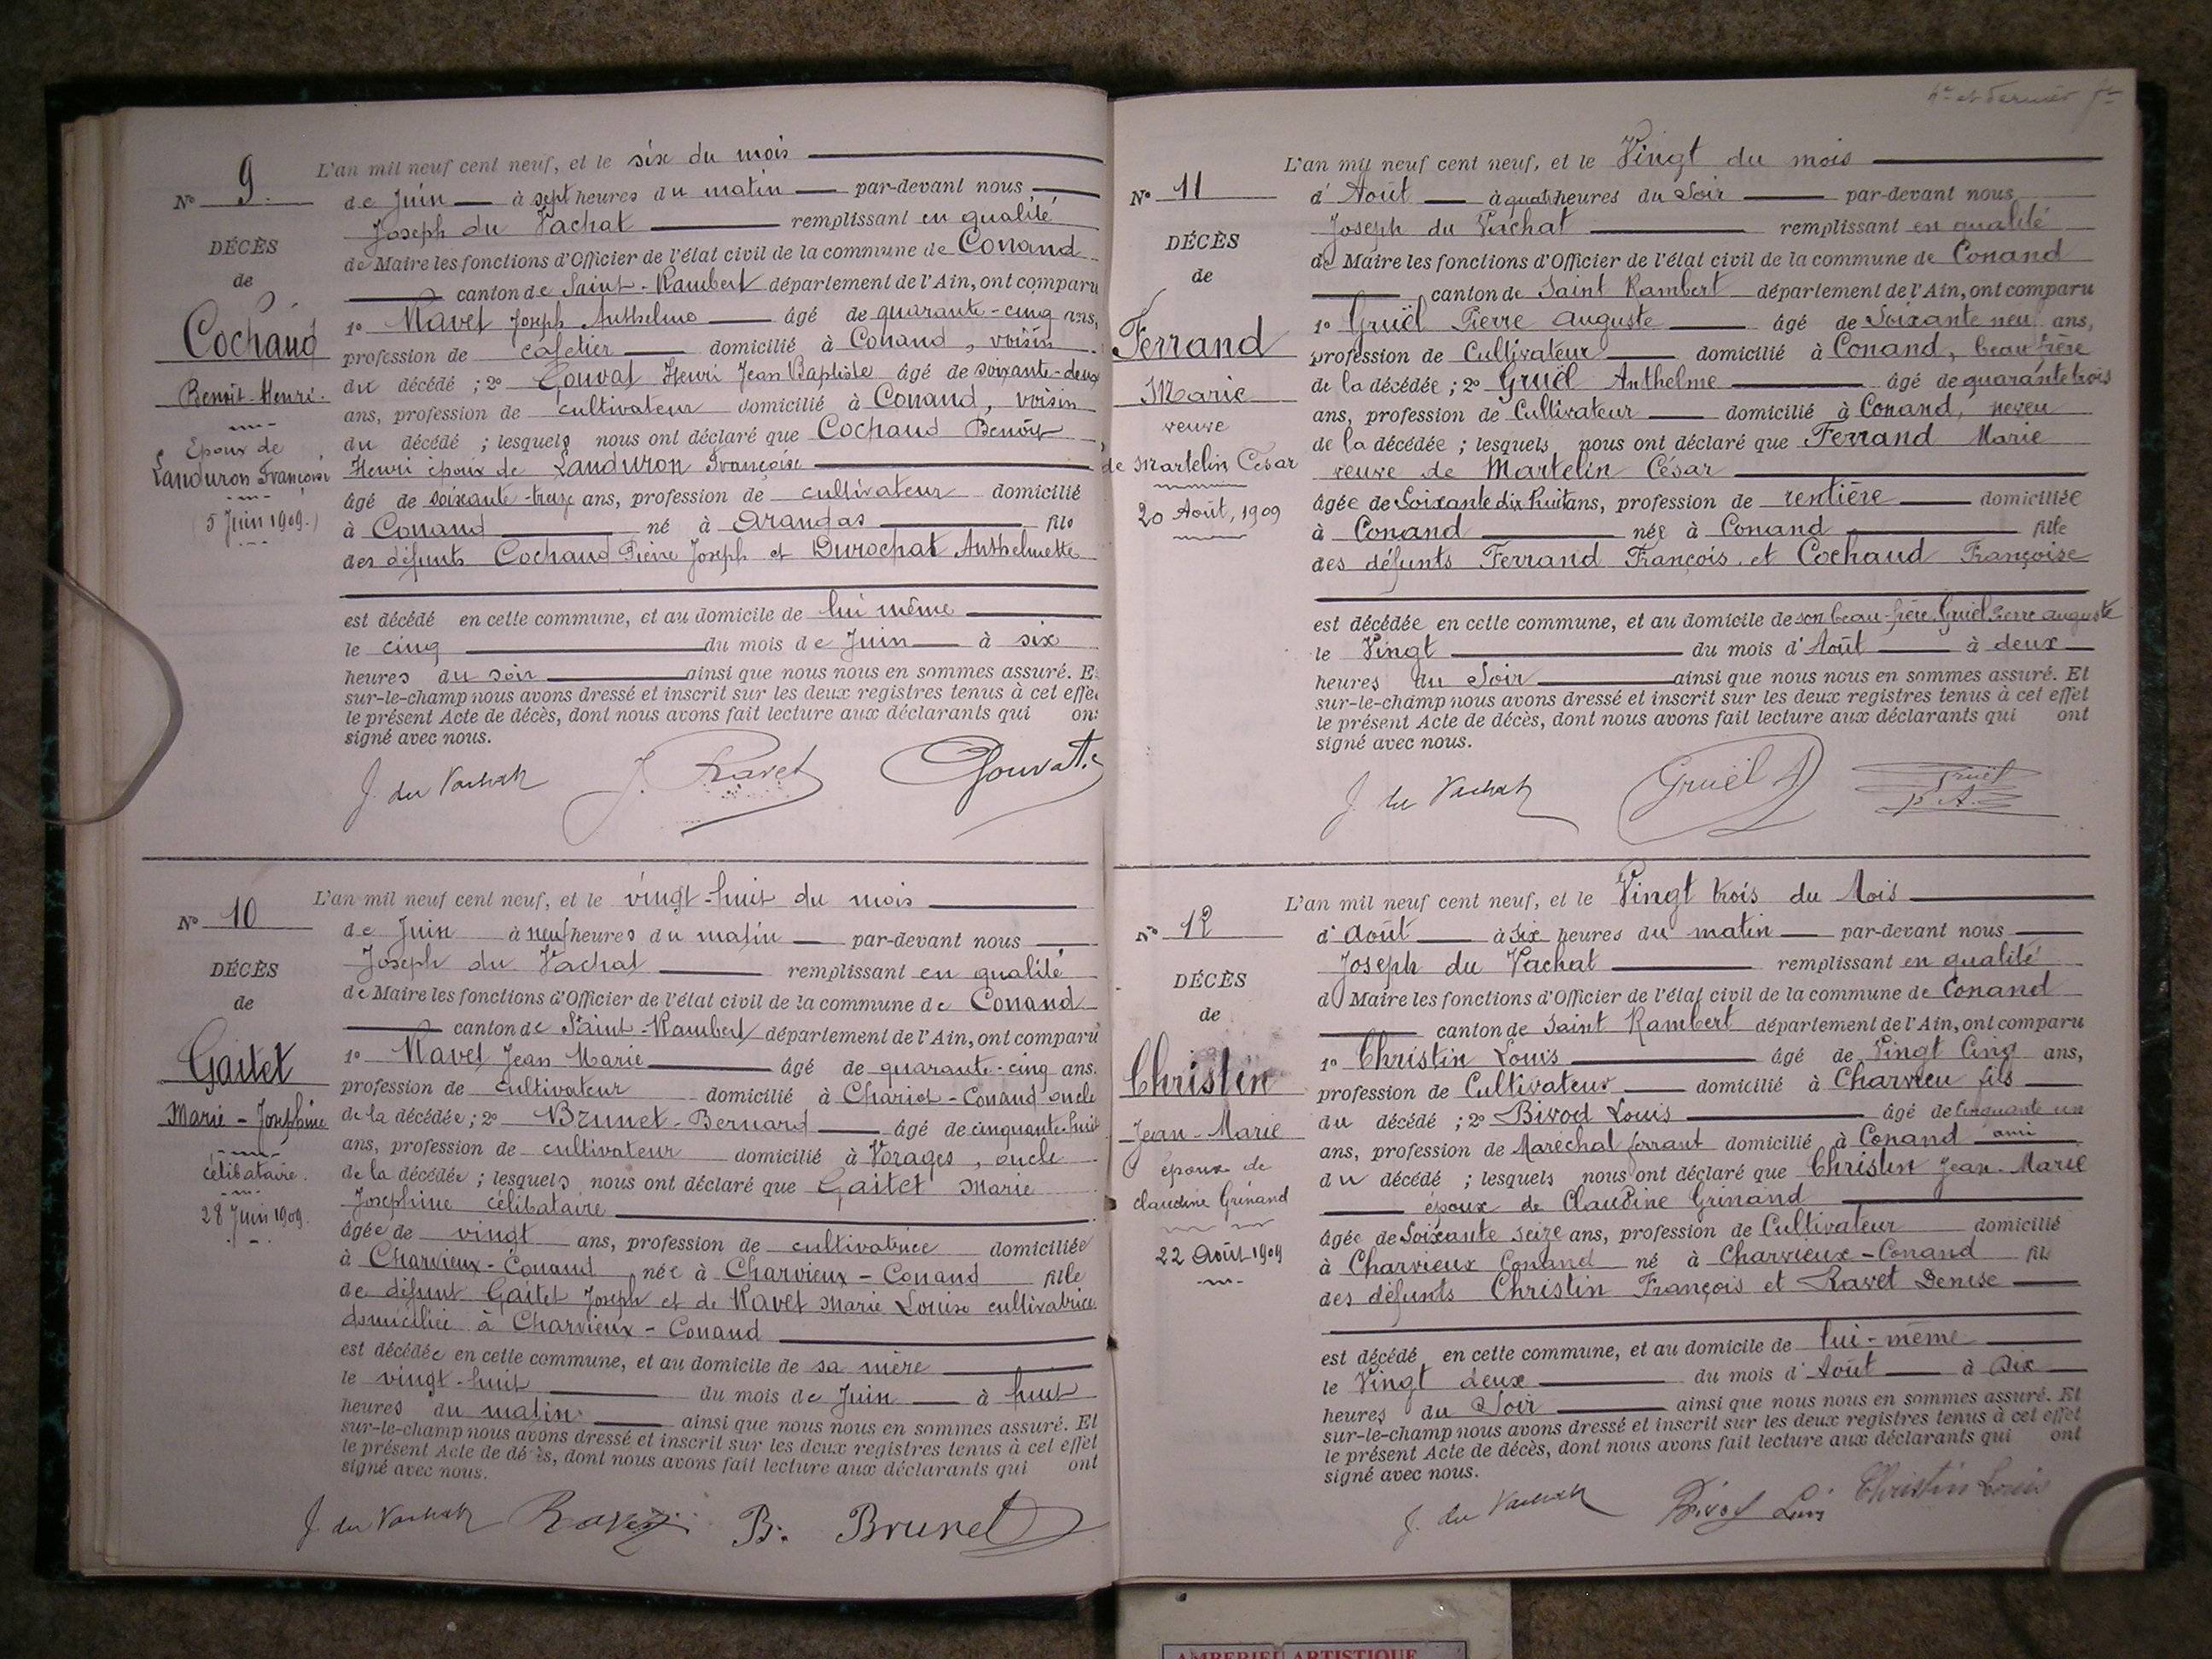 N° 9.
DÉCÈS
de
Cochaud
Benoît-Henri.
Epoux de
Landuron Françoise
(5 Juin 1909.)
L'an mil neuf cent neuf, et le six du mois
de Juin à sept heures du matin par-devant nous
Joseph du Vachat remplissant en qualité
de Maire les fonctions d'Officier de l'état civil de la commune de Conand
canton de Saint-Rambert département de l'Ain, ont comparu
1° Ravet Joseph Anthelme âgé de quarante-cinq ans,
profession de cafetier domicilié à Conand, voisin
du décédé ; 2° Gouvat Henri Jean Baptiste âgé de soixante-deux
ans, profession de cultivateur domicilié à Conand, voisin
du décédé ; lesquels nous ont déclaré que Cochaud Benoît
Henri époux de Landuron Françoise
âgé de soixante-treize ans, profession de cultivateur domicilié
à Conand né à Arandas fils
des défunts Cochaud Pierre Joseph et Durochat Anthelmette
est décédé en cette commune, et au domicile de lui même
le cinq du mois de Juin à six
heures du soir ainsi que nous nous en sommes assuré. E
sur-le-champ nous avons dressé et inscrit sur les deux registres tenus à cet effe
le présent Acte de décès, dont nous avons fait lecture aux déclarants qui on
signé avec nous.
J. du Vachat J. Ravet Gouvat
N° 10
DÉCÈS
de
Gaitet
Marie-Joséphine
célibataire.
28 Juin 1909.
L'an mil neuf cent neuf, et le vingt-huit du mois
de Juin à neuf heures du matin par-devant nous
Joseph du Vachat remplissant en qualité
de Maire les fonctions d'Officier de l'état civil de la commune de Conand
canton de Saint-Rambert département de l'Ain, ont comparu
1° Ravet Jean Marie âgé de quarante-cinq ans.
profession de cultivateur domicilié à -Conand oncle
de la décédée ; 2° Brunet-Bernard âgé de cinquante-huit
ans, profession de cultivateur domicilié à Vorages, oncle
de la décédée ; lesquels nous ont déclaré que Gaitet Marie
Joséphine célibataire
âgée de vingt ans, profession de cultivatrice domiciliée
à Charvieux-Conand née à Charvieux-Conand fille
de défunt Gaitet Joseph et de Ravet Marie Louise cultivatrice
domiciliée à Charvieux-Conand
est décédée en cette commune, et au domicile de sa mère
le vingt-huit du mois de Juin à huit
heures du matin ainsi que nous nous en sommes assuré. Et
sur-le-champ nous avons dressé et inscrit sur les deux registres tenus à cet effet
le présent Acte de décès, dont nous avons fait lecture aux déclarants qui ont
signé avec nous.
J. du Vachat Ravet B. Brunet
4e et dernier
N° 11
DÉCÈS
de
Ferrand
Marie
veuve
de Martelin César
20 Août, 1909
L'an mil neuf cent neuf, et le Vingt du mois
d'Août à quatre heures du Soir par-devant nous
Joseph du Vachat remplissant en qualité
de Maire les fonctions d'Officier de l'état civil de la commune de Conand
canton de Saint Rambert département de l'Ain, ont comparu
1° Gruël Pierre auguste âgé de Soixante neuf ans,
profession de Cultivateur domicilié à Conand, beau frère
de la décédée ; 2° Gruël Anthelme âgé de quarante trois
ans, profession de Cultivateur domicilié à Conand, neveu
de la décédée ; lesquels nous ont déclaré que Ferrand Marie
veuve de Martelin César
âgée de Soixante dix huit ans, profession de rentière domiciliée
à Conand née à Conand fille
des défunts Ferrand François et Cochaud Françoise
est décédée en cette commune, et au domicile de son beau-frère, Gruël Pierre auguste
le Vingt du mois d'Août à deux
heures du Soir ainsi que nous nous en sommes assuré. Et
sur-le-champ nous avons dressé et inscrit sur les deux registres tenus à cet effet
le présent Acte de décès, dont nous avons fait lecture aux déclarants qui ont
signé avec nous.
J. du Vachat Gruël A Gruël P. A.
N° 12
DÉCÈS
de
Christin
Jean-Marie
époux de
Claudine Grinand
22 Août 1909
L'an mil neuf cent neuf, et le Vingt trois du Mois
d'août à six heures du matin par-devant nous
Joseph du Vachat remplissant en qualité
d Maire les fonctions d'Officier de l'état civil de la commune de Conand
canton de Saint Rambert département de l'Ain, ont comparu
1° Christin Louis âgé de Vingt Cinq ans,
profession de Cultivateur domicilié à Charvieu fils
du décédé ; 2° Bivod Louis âgé de Cinquante un
ans, profession de Maréchal ferrant domicilié à Conand ami
du décédé ; lesquels nous ont déclaré que Christin Jean-Marie
époux de Claudine Grinand
âgée de Soixante seize ans, profession de Cultivateur domicilié
à Charvieux Conand né à Charvieux-Conand fils
des défunts Christin François et Ravet Denise
est décédé en cette commune, et au domicile de lui-même
le Vingt deux du mois d'Août à Dix
heures du Soir ainsi que nous nous en sommes assuré. Et
sur-le-champ nous avons dressé et inscrit sur les deux registres tenus à cet effet
le présent Acte de décès, dont nous avons fait lecture aux déclarants qui ont
signé avec nous.
J. du Vachat Bivod Louis Christin Louis
AMBERIEU ARTISTIQUE